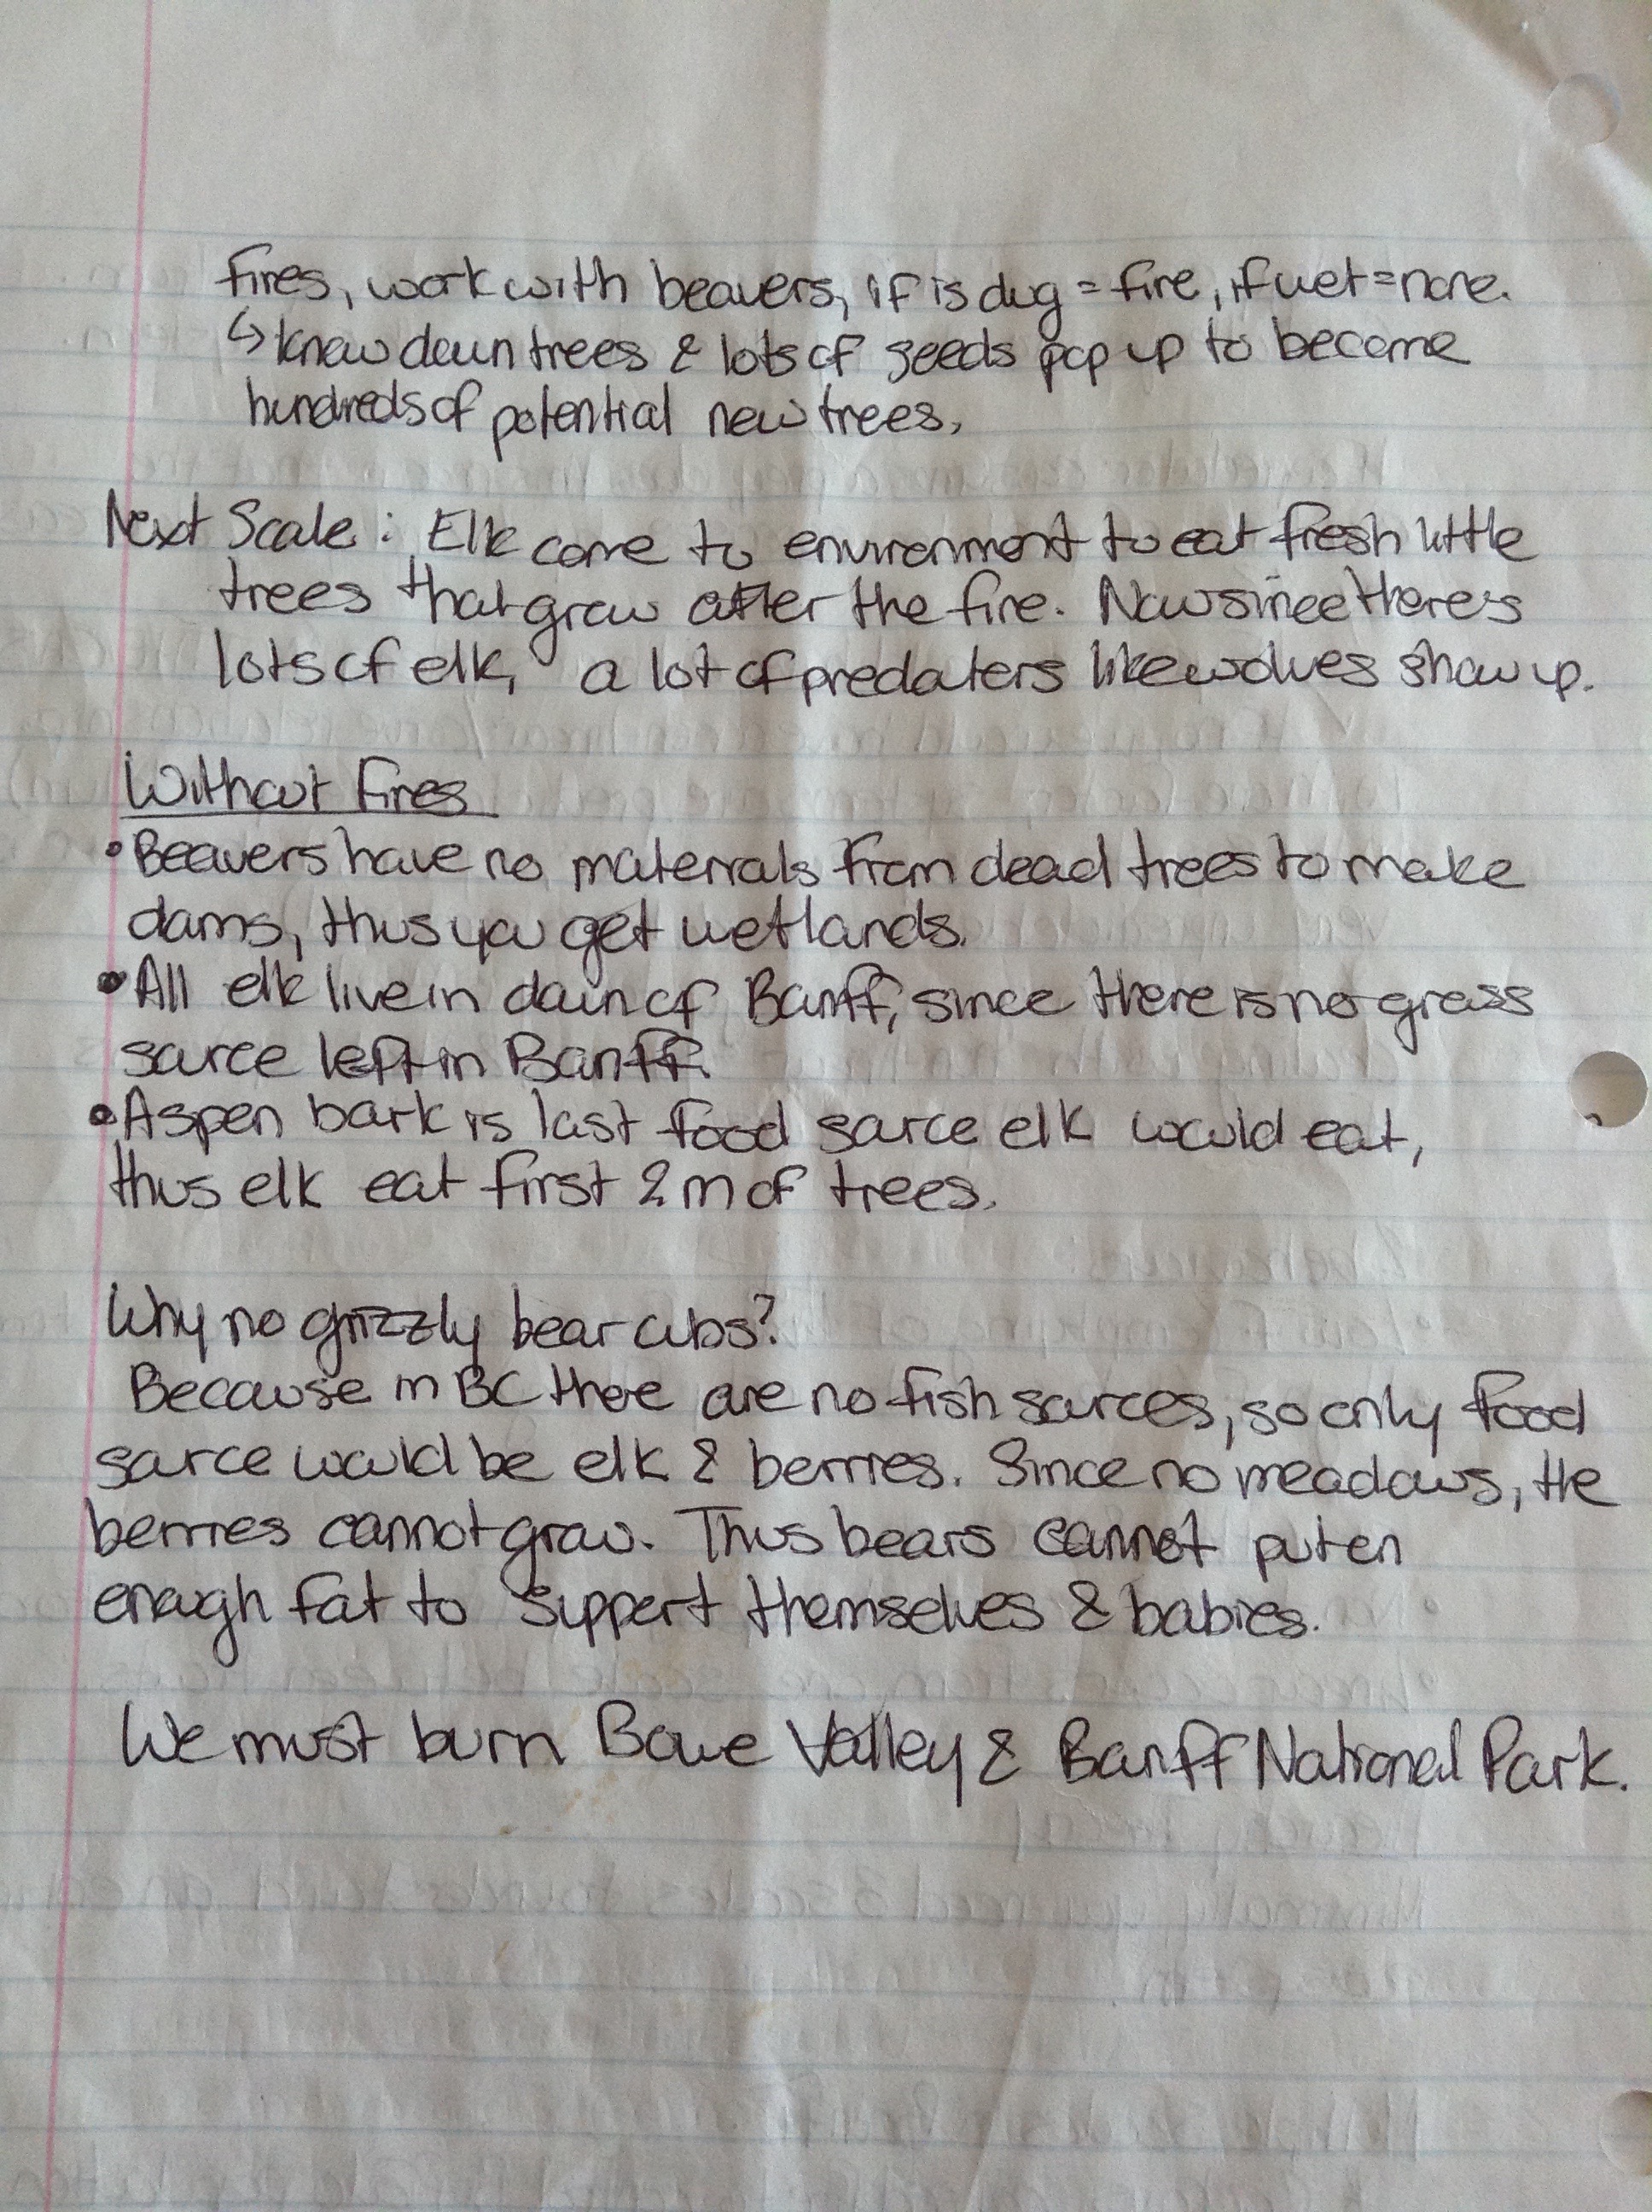 fires, work with beavers, if is dug = fire, if wet = none.
↳ knaw down trees & lots of seeds pop up to become
hundreds of potential new trees.
Next Scale: Elk come to environment to eat fresh little
trees that grow after the fire. Now since there's
lots of elk, a lot of predaters like wolves show up.
Without Fires
• Beavers have no materials from dead trees to make
dams, thus you get wetlands.
• All elk live in down of Banff, since there is no grass
source left in Banff.
• Aspen bark is last food source elk would eat,
thus elk eat first 2m of trees.
Why no grizzly bear cubs?
Because in BC there are no fish sources, so only food
source would be elk & berries. Since no meadows, the
berries cannot grow. Thus bears cannot put on
enough fat to support themselves & babies.
We must burn Bowe Valley & Banff National Park.